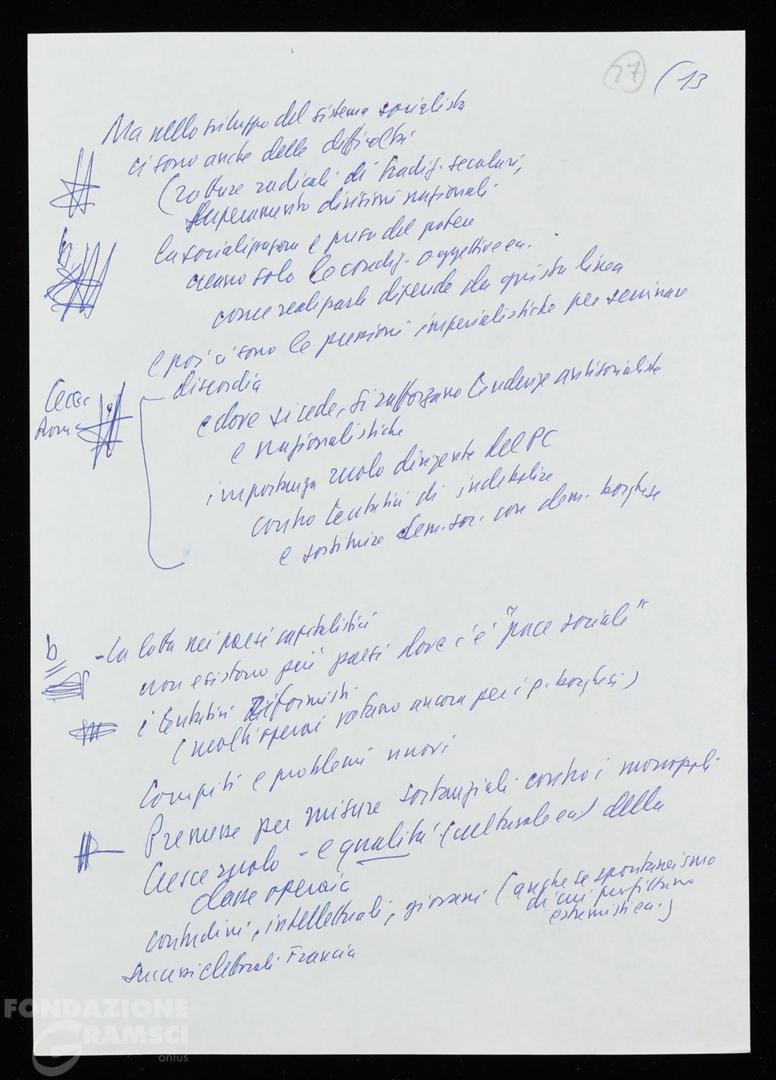 27
(13
Ma nello sviluppo del sistema socialista
ci sono anche delle difficoltà
(rotture radicali di tradiz. secolari,
superamento divisioni nazionali
la socializzazione e presa del potere
creano solo le condiz. oggettive ecc.
come realizzarle dipende da giusta linea
e poi ci sono le pressioni imperialistiche per seminare
discordia
e dove si cede, si rafforzano tendenze antisocialiste
e nazionalistiche
importanza ruolo dirigente del PC
contro tentativi di indebolire
e sostituire dem. soc. con dem. borghese
b
- la lotta nei paesi capitalistici
non esistono più paesi dove c'è "pace sociale"
i tentativi riformisti
(molti operai votano ancora per i p. borghesi)
Compiti e problemi nuovi
Premesse per misure sostanziali contro i monopoli
Cresce ruolo - e qualità (culturale ecc) della
classe operaia
contadini, intellettuali, giovani (anche se spontaneismo
di cui profittano
estremisti ecc.)
successi elettorali Francia
FONDAZIONE
GRAMSCI
onlus